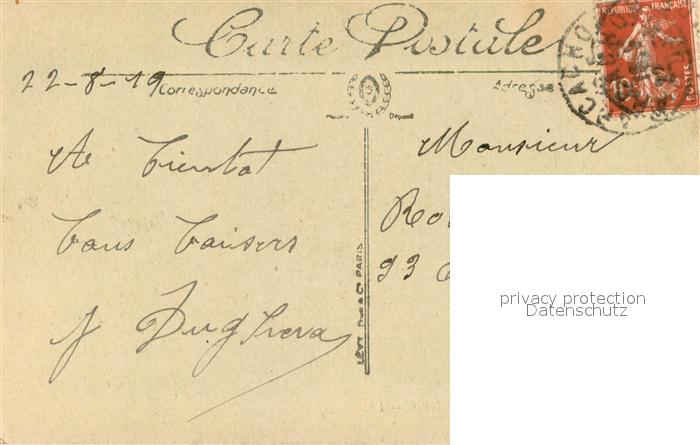 Carte Postale
22-8-19
Correspondance
Adresse
REPUBLIQUE FRANÇAISE
10
POSTES
CACHO
Déposé
A bientot
bons baisers
Monsieur
Ro
93
LEVY FILS & Cie PARIS
privacy protection
Datenschutz